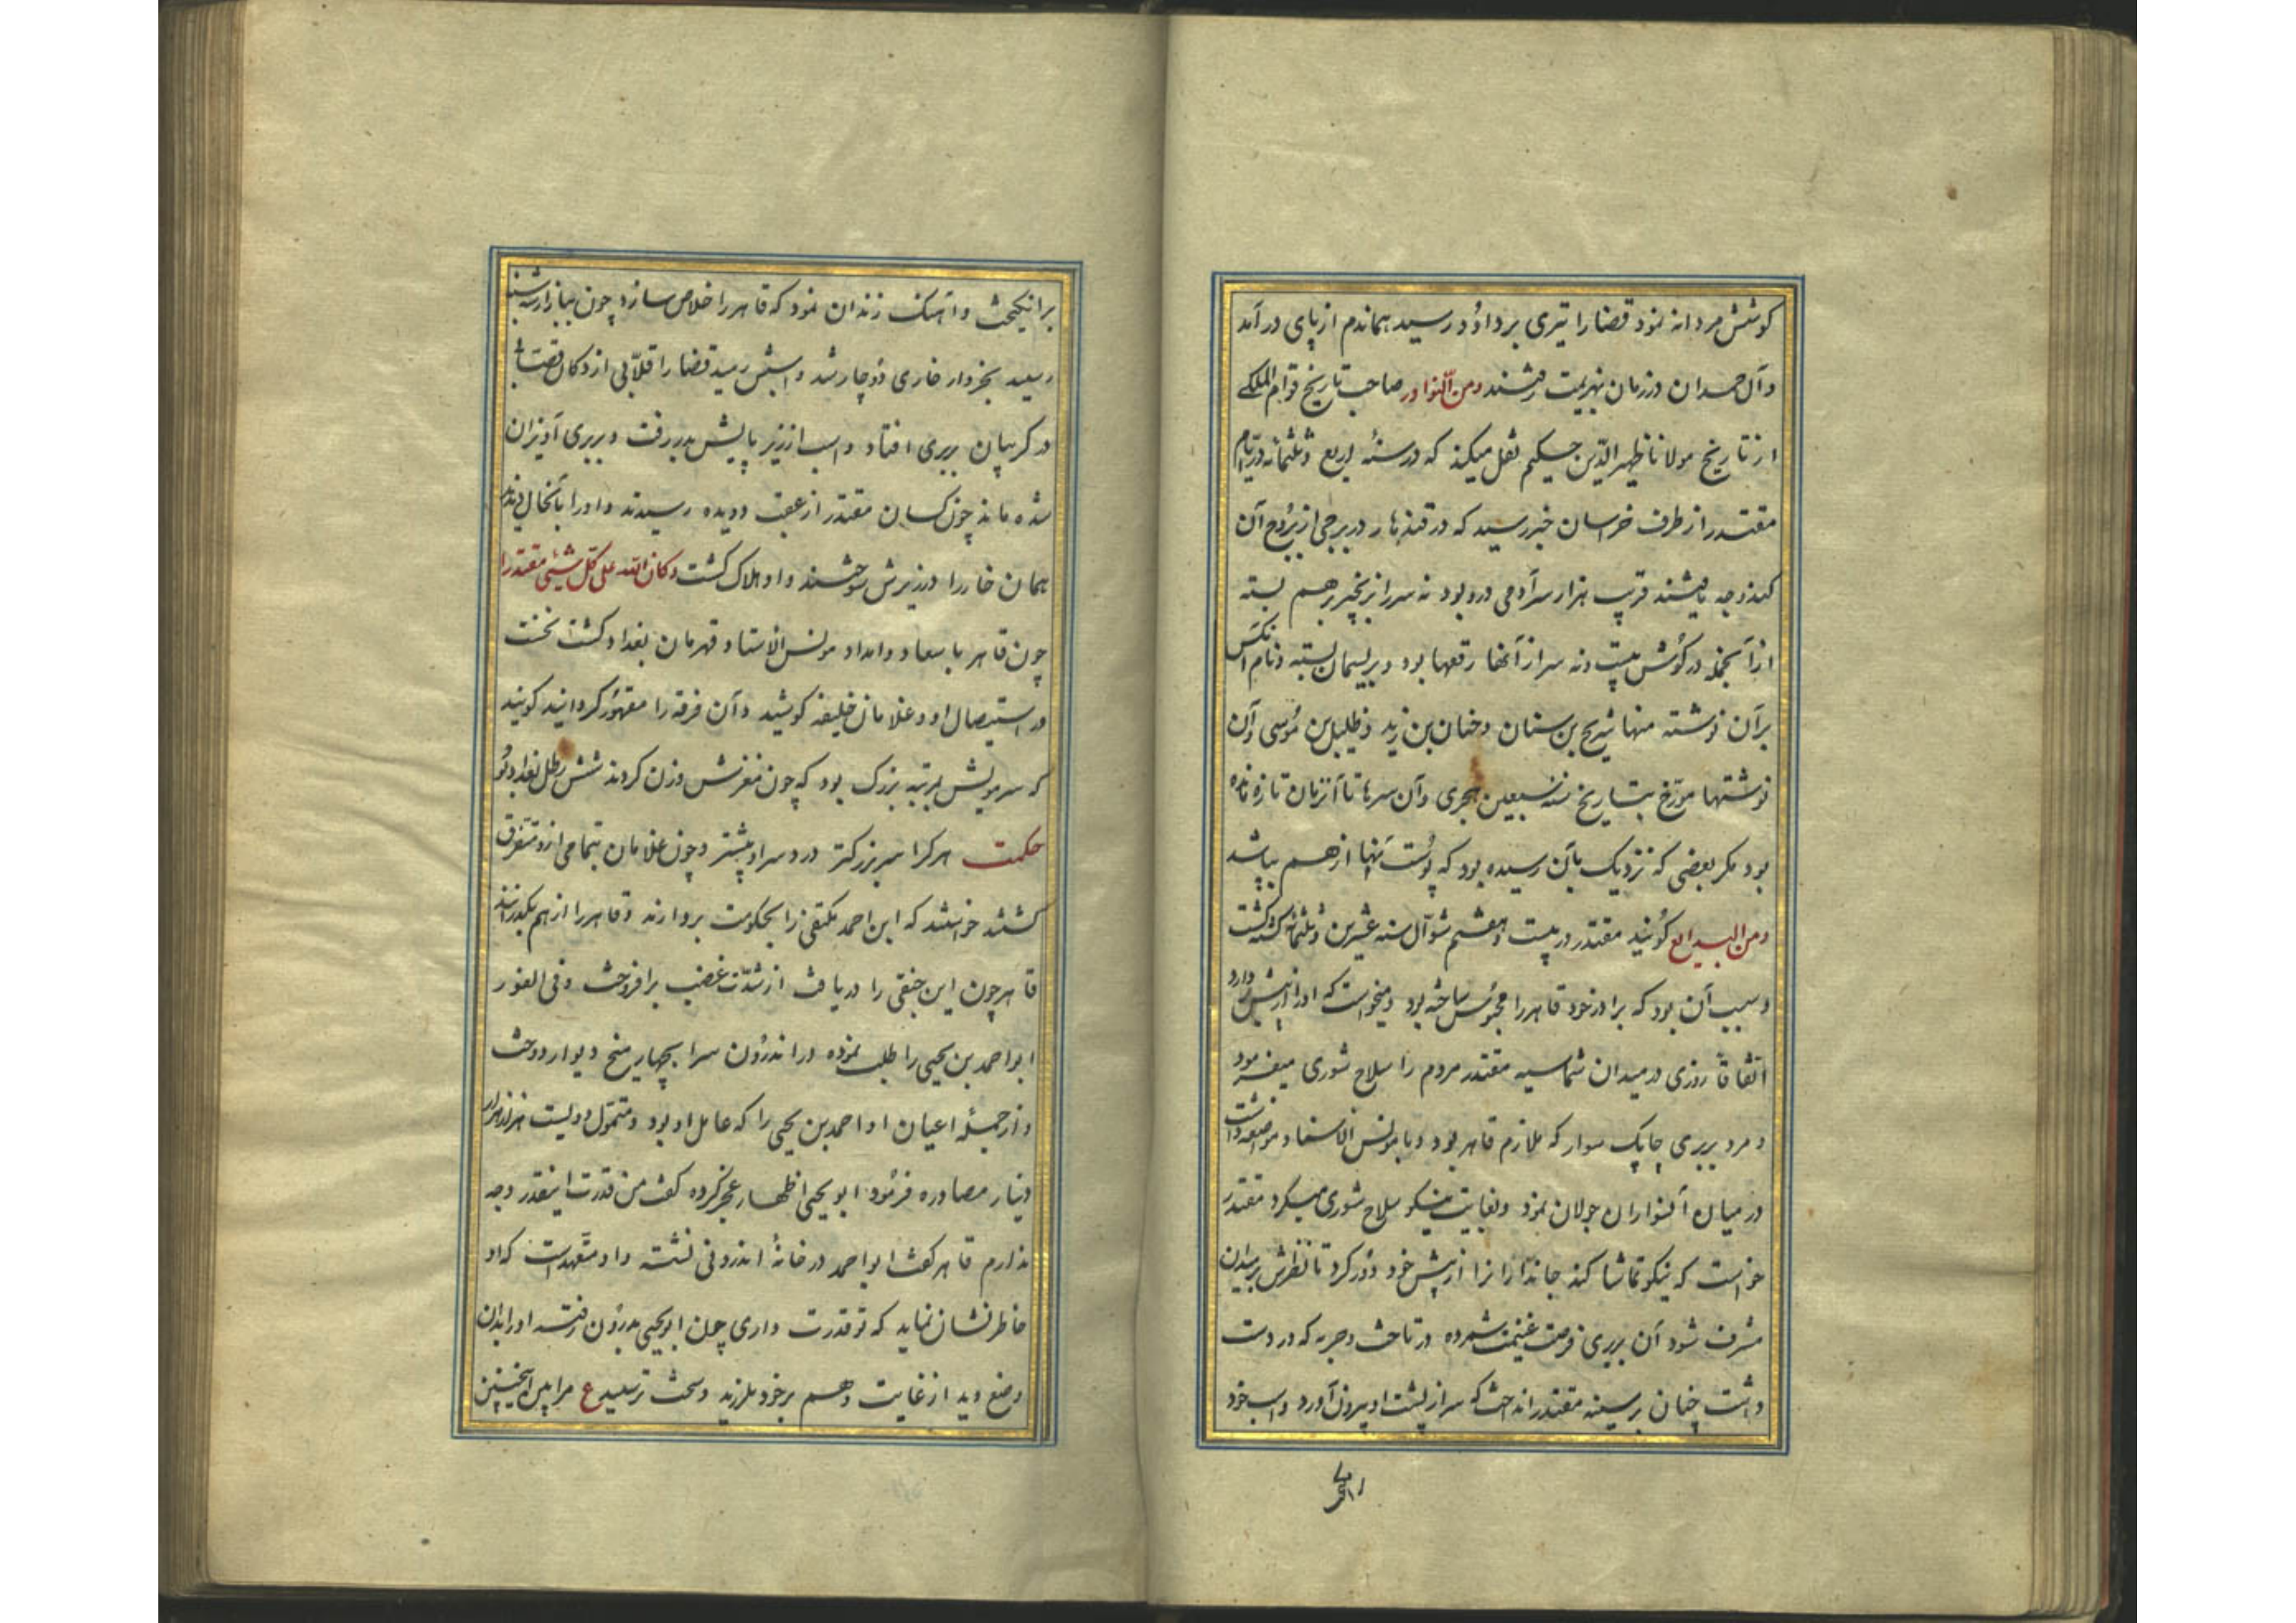 کوشش مردانه نمود قضا را تیری بر داود رسید هماندم از پای درآمد
و آل حمدان در زمان بهزیمت رفتند ومن النوادر صاحب تاریخ قوام الملکی
از تاریخ مولانا ظهیر الدین حکیم نقل میکند که در سنهٔ اربع و ثلثمائه در ایام
مقتدر از طرف خراسان خبر رسید که در قندهار در برجی از بروج آن
کندوجه یافتند قریب هزار سر آدمی درو بود نه سر از بزنجیر برهم بسته
از آنجمله در گوش بیست ونه سر از آنها رقعها بود و بریسمان بسته ونام آنکس
بر آن نوشته منها شریح بن سنان و حنان بن زید و طلیل بن موسی و آن
نوشتها مورخ بتاریخ سنه سبعین هجری و آن سرها تا آنزمان تازه مانده
بود مکر بعضی که نزدیک بآن رسیده بود که پوست آنها از هم بپاشد
ومن البدایع کویند مقتدر در بیست و هفتم شوال سنه عشرین و ثلثمائه کشته کشت
و سبب آن بود که برادر خود قاهر را محبوس ساخته بود و میخواست که او را از پیش بردارد
اتفاقا روزی در میدان شماسیه مقتدر مردم را سلاح شوری میفرمود
و مرد بربری چابک سوار که ملازم قاهر بود و با مونس الاستاد مواضعه داشت
در میان آن سواران جولان نمود و بغایت نیکو سلاح شوری میکرد مقتدر
خواست که نیکو تماشا کند جانداران را از پیش خود دور کرد تا نظرش بمیدان
مشرف شود آن بربری فرصت غنیمت شمرده در تاخت و حربه که در دست
داشت چنان بر سینه مقتدر انداخت که سر از پشت او بیرون آورد و اسب خود
برانکیخت
برانکیخت و آهنک زندان نمود که قاهر را خلاص سازد چون ببازار رسید
رسید بخروار خاری دوچار شد و اسبش رمید قضا را قلابی از دکان قصاب
در کریبان بربری افتاد و اسب از زیر پایش بدر رفت و بربری آویزان
شده ماند چون کسان مقتدر از عقب دویده رسیدند و او را بآنحال دیدند
همان خار را در زیرش سوختند و او هلاک کشت وکان الله علی کل شیئی مقتدرا
چون قاهر با سعاد و امداد مونس الاستاد قهرمان بغداد کشت نخست
در استیصال او و غلامان خلیفه کوشید و آن فرقه را مقهور کردانید کویند
که سر مونس بمرتبه بزرک بود که چون مغزش وزن کردند شش رطل بغداد بود
حکمت هر کرا سر بزرکتر درد سر او بیشتر و چون غلامان بتمامی ازو متفرق
کشتند خواستند که ابن احمد مکتفی را بحکومت بردارند و قاهر را از هم بکذرانند
قاهر چون این خفی را دریافت از شدت غضب برافروخت و فی الفور
ابو احمد بن یحیی را طلب نموده در اندرون سرا بچهار میخ دیوار دوخت
و از جمله اعیان او احمد بن یحیی را که عامل او بود و متمول دویست هزار هزار
دینار مصادره فرمود ابو یحیی اظهار عجز کرده کفت من قدرت اینقدر وجه
ندارم قاهر کفت ابو احمد در خانهٔ اندرونی نشسته و او متعهدست که او
خاطرنشان نماید که تو قدرت داری چون ابو یحیی بدرون رفت او را بدان
وضع دید از غایت وهم بر خود بلرزید و سخت ترسید ع مرا پس اینچنین